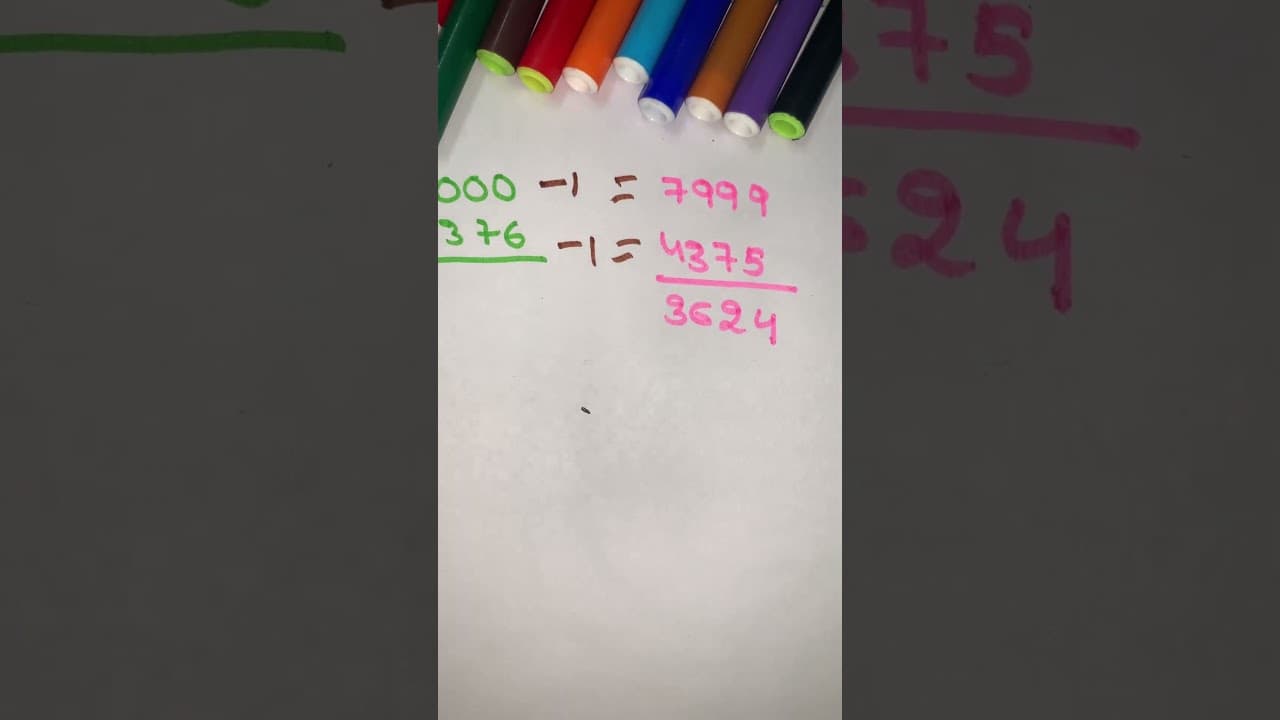 000 -1 = 7999
376 -1 = 4375
3624